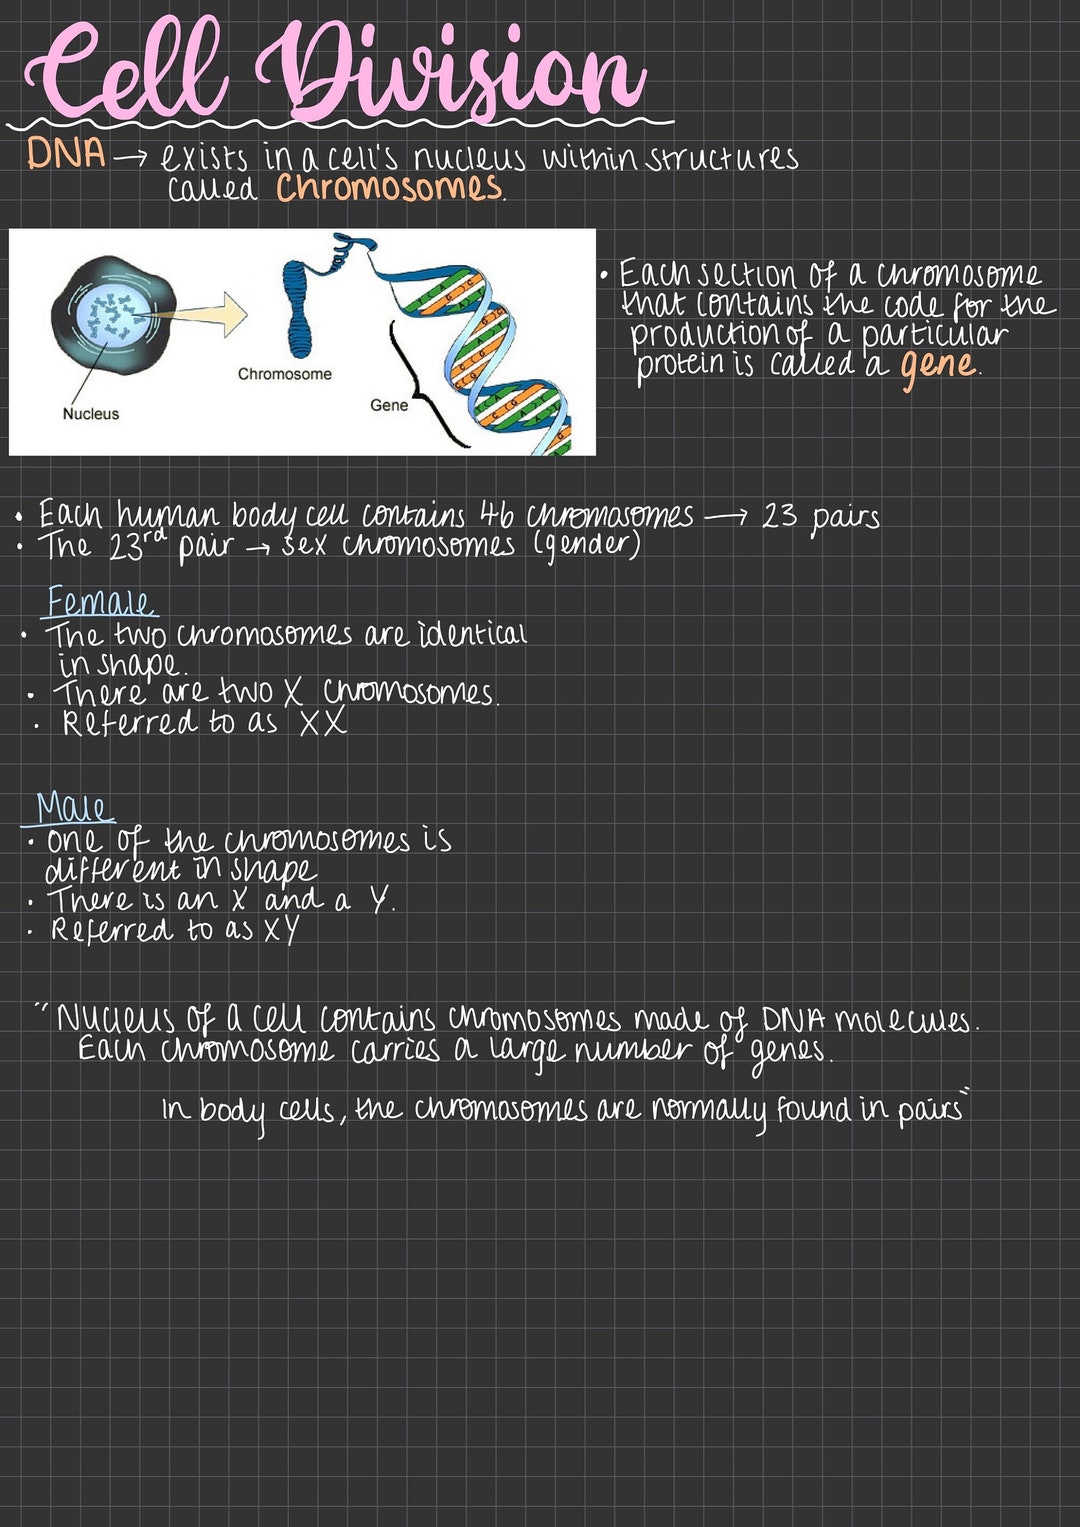 Cell Division
DNA → exists in a cell's nucleus within structures
called Chromosomes.
Nucleus
Chromosome
Gene
• Each section of a chromosome
that contains the code for the
production of a particular
protein is called a gene.
• Each human body cell contains 46 chromosomes → 23 pairs
• The 23rd pair → sex chromosomes (gender)
Female
• The two chromosomes are identical
in shape.
• There are two X chromosomes.
• Referred to as XX
Male
• One of the chromosomes is
different in shape
• There is an X and a Y.
• Referred to as XY
"Nucleus of a cell contains chromosomes made of DNA molecules.
Each chromosome carries a large number of genes.
In body cells, the chromosomes are normally found in pairs"